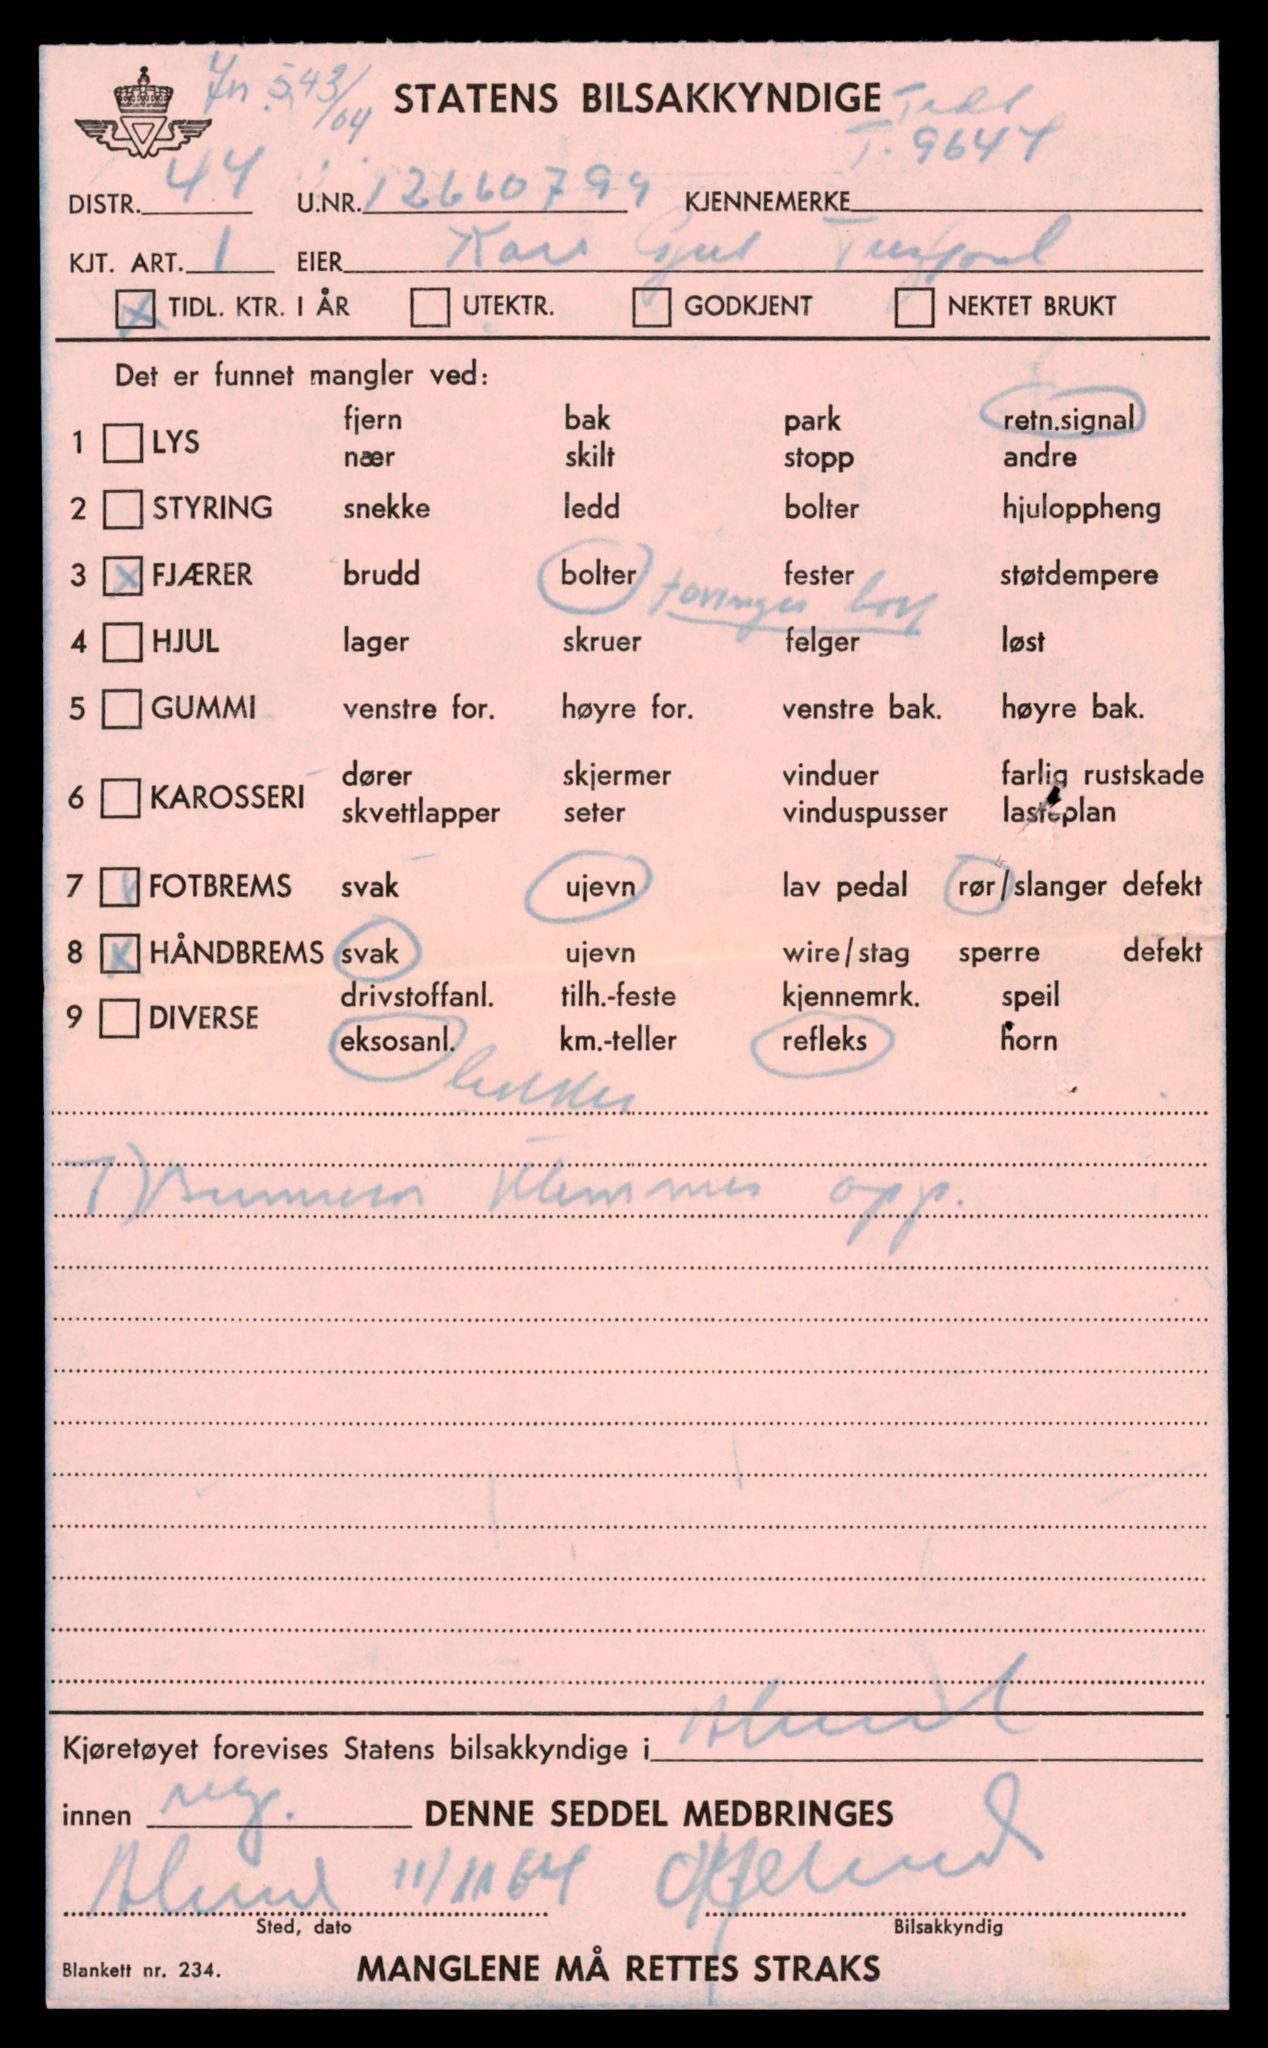 Jn 543/64
STATENS BILSAKKYNDIGE
Tidl
T. 9647
DISTR. 44 U.NR. 12660799 KJENNEMERKE
KJT. ART. 1 EIER Kåre
X TIDL. KTR. I ÅR UTEKTR. GODKJENT NEKTET BRUKT
Det er funnet mangler ved:
fjern bak park retn.signal
1 LYS
nær skilt stopp andre
2 STYRING snekke ledd bolter hjuloppheng
3 X FJÆRER brudd bolter fester støtdempere
4 HJUL lager skruer felger løst
5 GUMMI venstre for. høyre for. venstre bak. høyre bak.
dører skjermer vinduer farlig rustskade
6 KAROSSERI
skvettlapper seter vinduspusser lasteplan
7 FOTBREMS svak ujevn lav pedal rør/slanger defekt
8 X HÅNDBREMS svak ujevn wire/stag sperre defekt
drivstoffanl. tilh.-feste kjennemrk. speil
9 DIVERSE
eksosanl. km.-teller refleks horn
lekker
7) klemmes opp.
Kjøretøyet forevises Statens bilsakkyndige i Ålesund
innen reg. DENNE SEDDEL MEDBRINGES
Ålesund 11/11 64
Sted, dato Bilsakkyndig
Blankett nr. 234. MANGLENE MÅ RETTES STRAKS